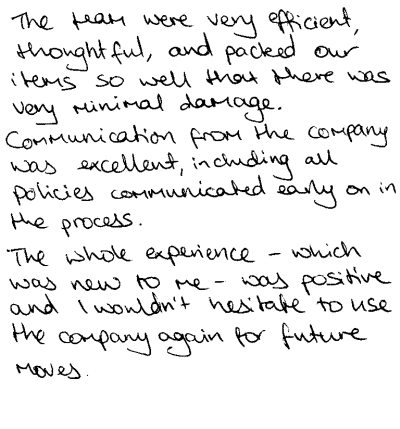 The team were very efficient,
thoughtful, and packed our
items so well that there was
very minimal damage.
Communication from the company
was excellent, including all
policies communicated early on in
the process.
The whole experience – which
was new to me – was positive
and I wouldn't hesitate to use
the company again for future
moves.